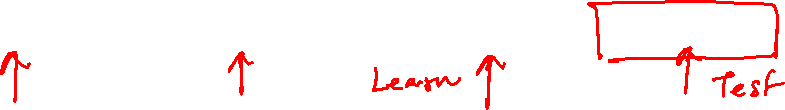 Learn
Test